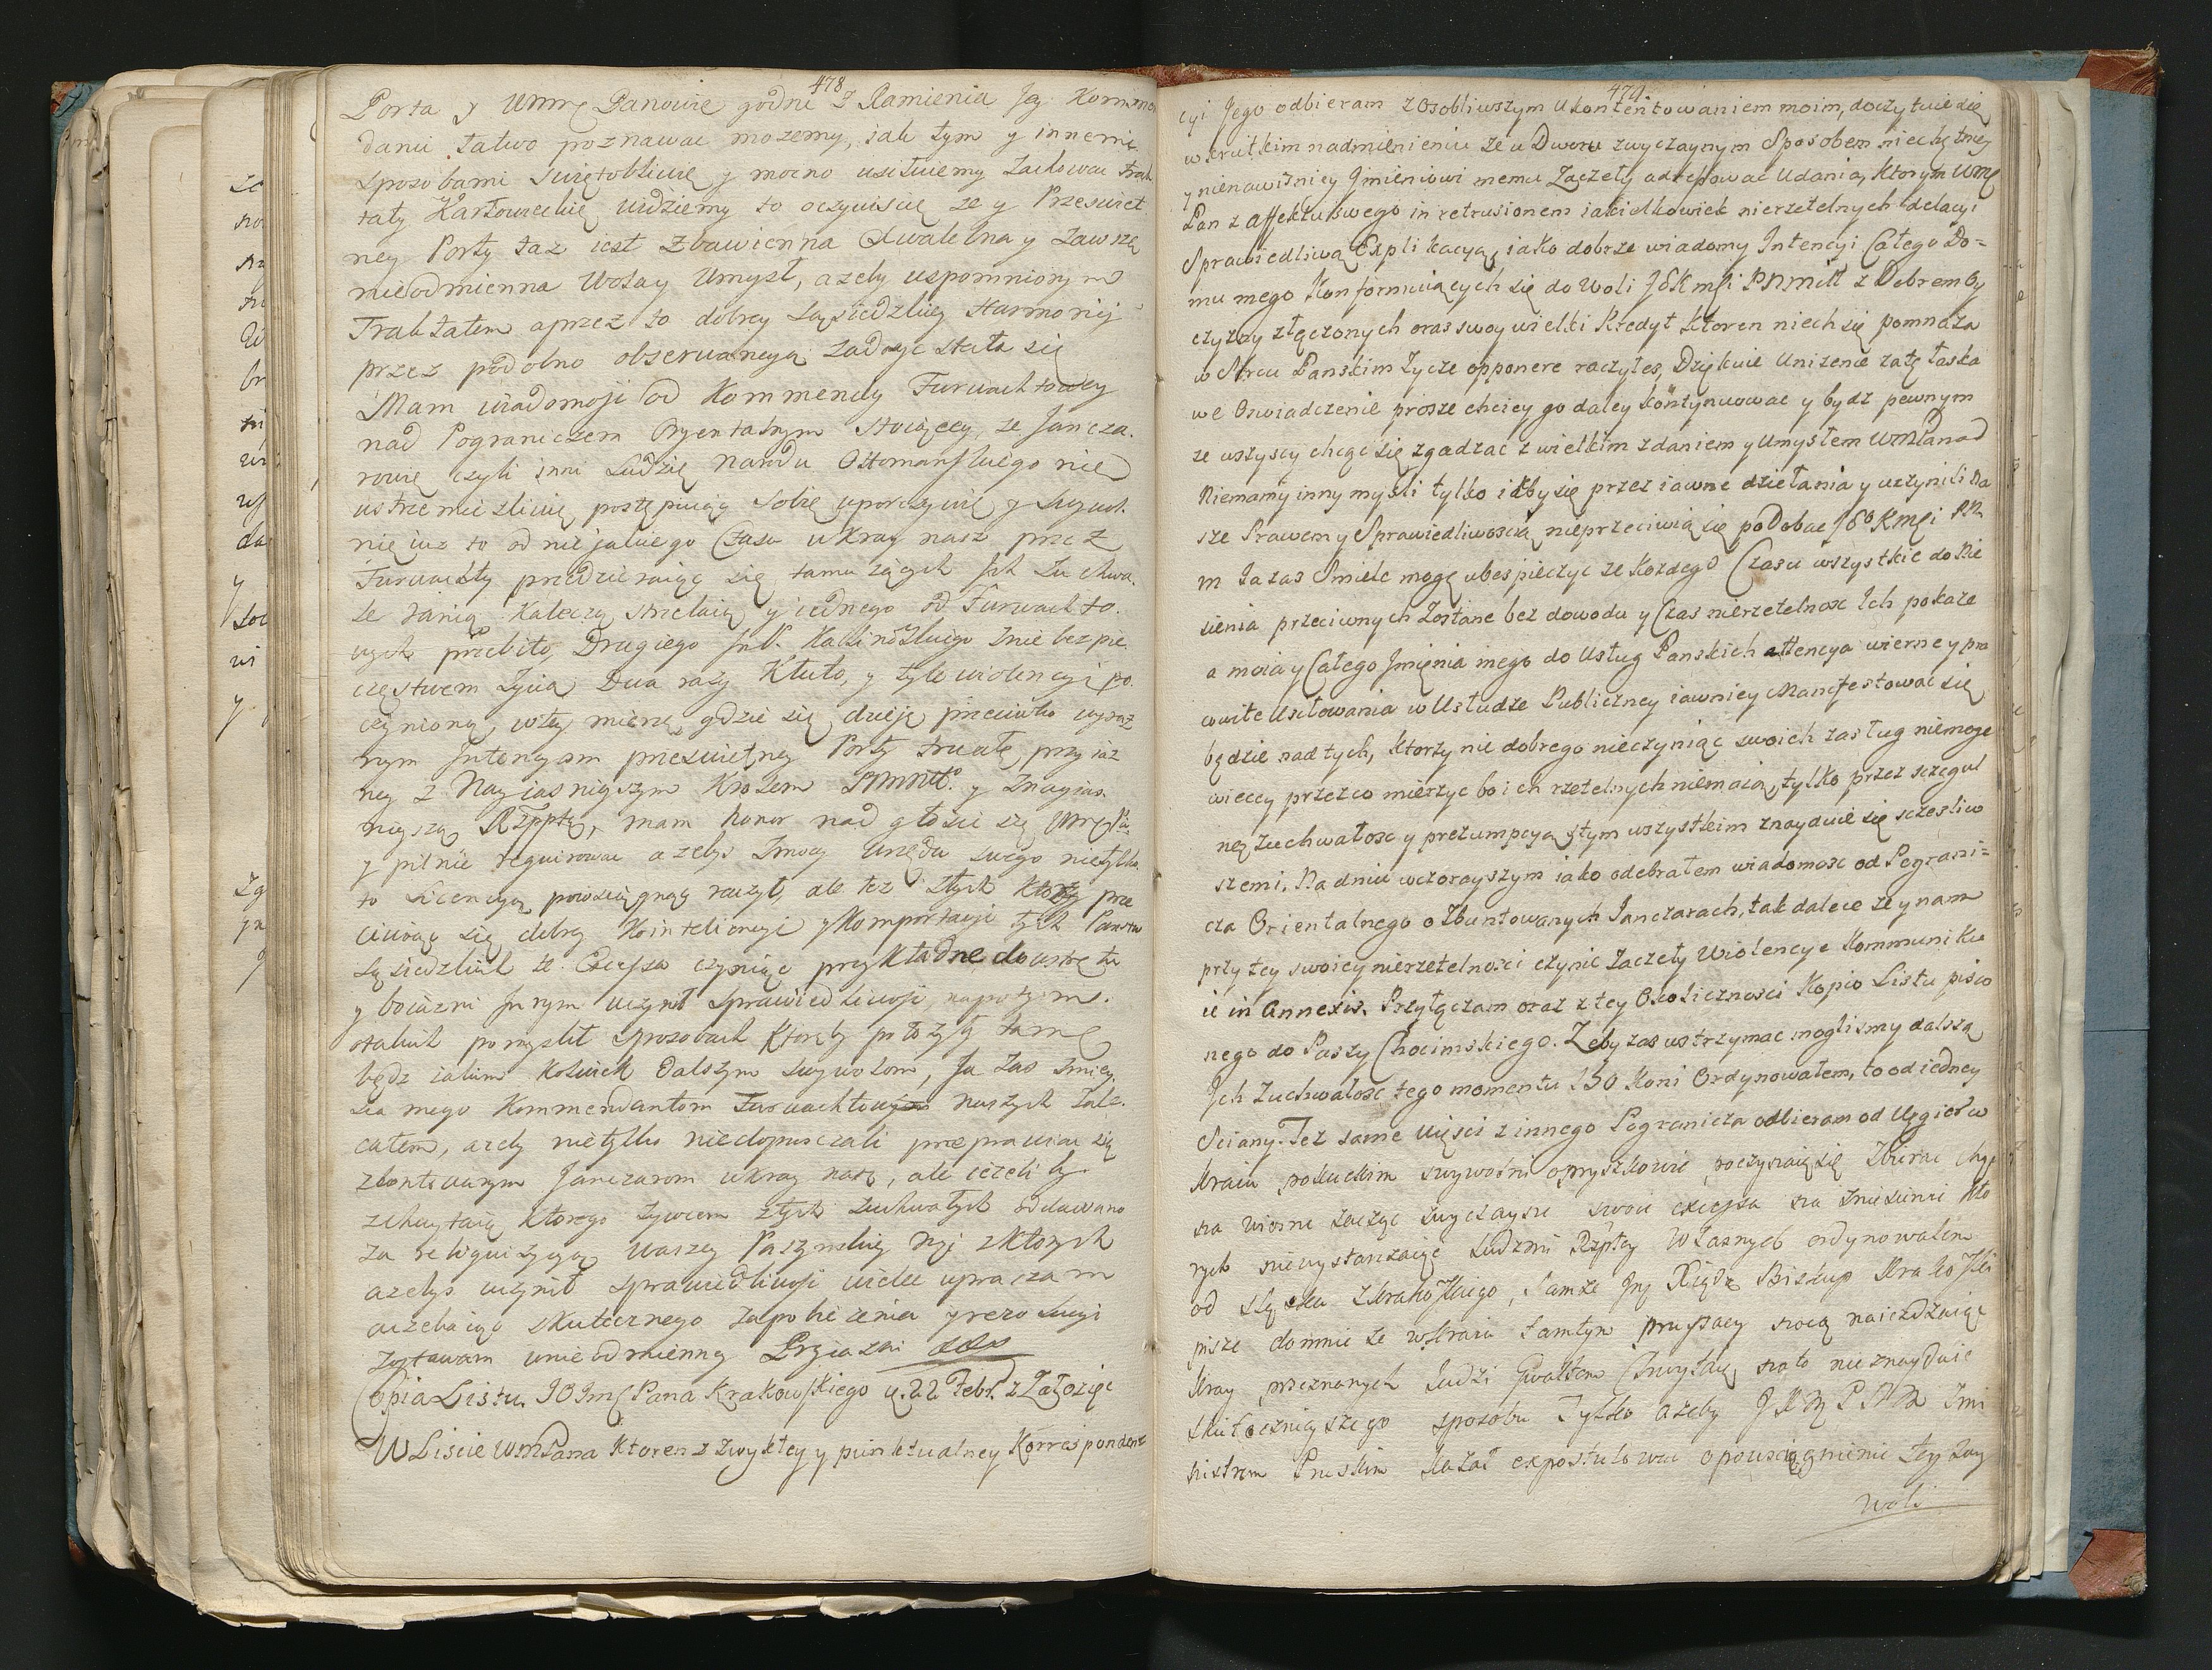 478
Porta y Wmę Panowie godni z Ramienia Jey Kommen
danci łatwo poznawac mozemy, iak tym y innemi
sposobami swiętobliwie y mocno usiłuiemy zachowac Trak
taty Karłowieckie widziemy to oczywiscie ze y Przeswiet
ney Porty taz iest zbawienna chwalebna y zawsze
nieodmienna Wola y Umysł, azeby wspomnionym
Traktatem a przez to dobrey sąsiedzkiey Harmonij
przez podolno obserwancyą zadosyc stało się
Mam wiadomosc od Kommendy Furwachtowey
nad Pograniczem Oryentalnym stoiącey, ze Jancza.
rowie czyli inni Ludzie Narodu Ottomanskiego nie
wstrzemięzliwie postępuiąc sobie uporczywie y
nie iuz to od niejakiego Czasu w Kray nasz przez
Furwachty przedzieraiąc się tamuiących Ich zuchwa.
le ranią kaleczą strzelaią y iednego od Furwachto.
wych przebito, Drugiego Kalinoskiego z niebezpie.
częstwem zycia Dwa razy Kłuto, y tyle wiolencyi po.
czyniono, w tey mierze gdzie się dzieje przeciwko wyraz
nym Intencyom przeswietney Porty trwałe przyiaz
ney z Nayiasnieyszym Krolem PNMM y z nayias.
nieyszą Rzpptą, mam honor nad głosic się Wmę Pa.
y pilnie requirowac azebys z mocy Urzędu swego nie tylko
to Licencyą powsciągnąc raczył, ale tez z tych ktorzy prze
ciwiąc się dobrey Kointeligencyi y Komportacyi tych Panstw
sąsiedzkich te Excessa czyniąc przykładne do wstrętu
y boiazni innym uczynił sprawiedliwosc, napotym.
o takich pomyslił sposobach ktoreby połozyły tamę
będz iakim Kolwiek dalszym swywolom, Ja zas
sca mego Kommendantom Furwachtowym naszych zale.
całem, azeby nie tylko niedopuszczali przeprawiac się
zbontowanym Janczarom w kray nasz, ale iezeliby
zchwytaią ktorego zywcem z tych zuchwałych oddawano
za rekwizycyą Waszey Paszynskiey Mci z ktorych
azebys uczynił sprawiedliwosc wielce upraszam
oczekaiąc skutecznego zapobiezenia y rezolucyi
zostawam w nieodmienney Przyiazni
Copia Listu JO Imsc Pana Krakowskiego d. 22 Febr. z Załozic
W Liscie WmPana Ktoren z zwykłey y punktualney Korrespondent
479
cyi Jego odbieram z Osobliwszym Ukontentowaniem moim, doczytuie się
w krutkim nadmienieniu ze u Dworu zwyczaynym Sposobem niechętney
y nienawisnicy Jmieniowi memu Zaczeły adrepować udania, ktorym Wmę
Pan z affektu swego in retrusionem iakichkowiek nierzetelnych delacyi
Sprawiedliwą Explikacyą, iako dobrze wiadomy Intencyi Całego Do=
mu mego Konformuiących się do Woli JoKmsci PNMM z Dobrem Oy
czyzny złączonych oraz swoy wielki Kredyt ktoren niech się pomnaza
w Sercu Panskim zycze opponere raczyłes, Dziękuie Unizenie zatę łaska
we Oswiadczenie prosze chciey go daley kontynuowac y bydz pewnym
ze wszyscy chcąc się zgadzac z wielkim zdaniem y Umysłem WmPana d
Niemamy inny mysli tylko izby się przez iawne dziełania y uczynili Na
sze Prawem y Sprawiedliwoscią nieprzeciwią się podobac JoKmsci PN
m Ja zas Smiele mogę ubespieczyc ze Kozdego Czasu wszystkie donie
sienia przeciwnych Zostane bez dowodu y Czas nierzetelnosc Ich pokaze
a moia y Całego Jmięnia mego do Usług Panskich attencya wierne y pra
cowite Usiłowania w Usłudze Publiczney iawniey Manifestowac się
będzie nad tych, ktorzy nic dobrego nieczyniąc swoich zasług niemoge
wiecey przezco mierzyc bo ich rzetelnych niemaią, tylko przez szczegul
neg Zuchwałosc y prezumpcyą z tym wszystkim znayduie się sczesliw
szemi. Na dniu wczorayszym iako odebrałem wiadomosc od Pograni=
cza Orientalnego o Zbuntowanych Janczarach, tak dalece ze y nam
przy tey swoiey nierzetelnosci czynic Zaczeły Wiolencye Kommuniku
ie in Annexis. Przyłączam oraz z tey Okolicznosci Kopio Listu pisa
nego do Paszy Chocimskiego. Zeby zas wstrzymac moglismy dalszą
Ich Zuchwałosc tego momentu 150 Koni Ordynowałem, to od iedney
Sciany. Tez same więsci z innego Pogranicza odbieram od Węgier w
Kraiu pokuckim swywolni opryszkowie poczynaią się Zbierac chcąc
na wiosnę zacząc zwyczayne swoie excessa na zniesienie kto
rych niewystarczaiąc Ludzmi Rzpltey Własnych ordynowałem
od Sląska z Krakoskiego, Tamze Jmc Xiądz Biskup Krakoski
pisze do mnie ze w Kraiu tamtym prussacy swoią naiezdzaiąc
Kray przeznanych Ludzi Gwałtem Chwytaią na to nieznayduie
skutecznieyszego sposobu Tylko azeby JKM PNM z mi
nistrem Pruskim kazał expostulowac o powsciągnienie tey swy
woli